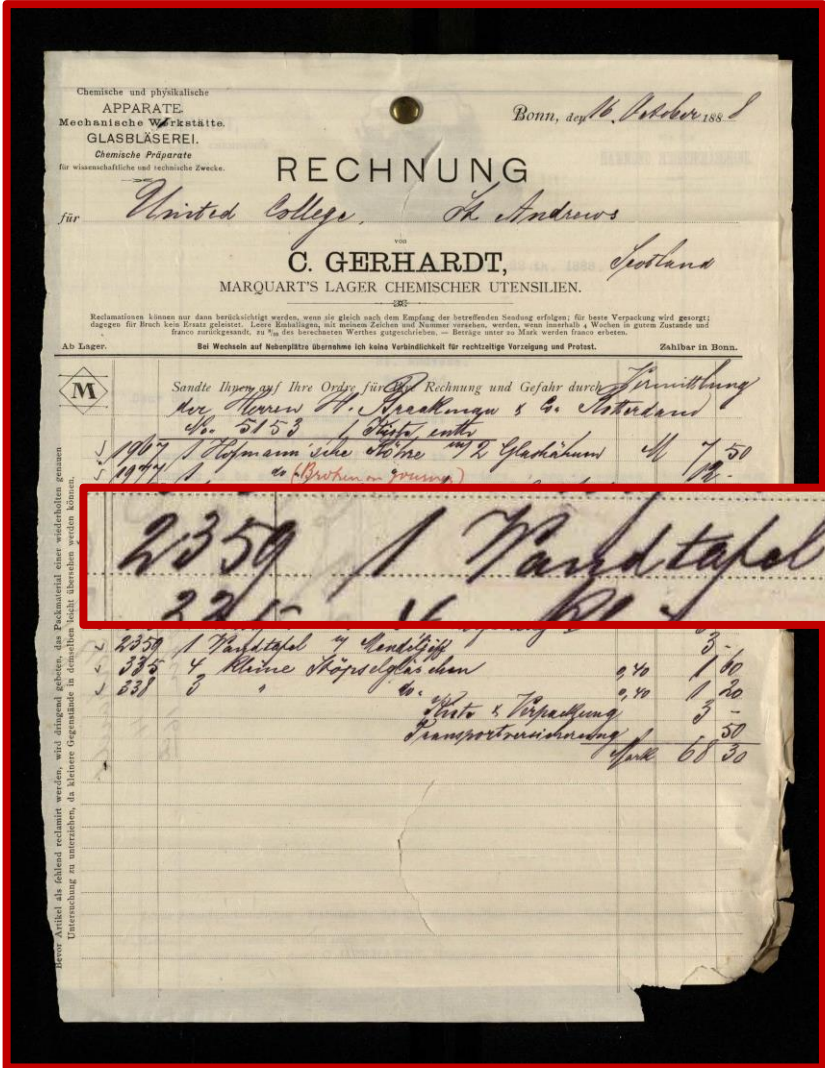 Chemische und physikalische
APPARATE.
Mechanische Werkstätte.
GLASBLÄSEREI.
Chemische Präparate
für wissenschaftliche und technische Zwecke.
Bonn, den 16. October 1888
RECHNUNG
für United College. St Andrews
von
C. GERHARDT, Scotland
MARQUART'S LAGER CHEMISCHER UTENSILIEN.
Reclamationen können nur dann berücksichtigt werden, wenn sie gleich nach dem Empfang der betreffenden Sendung erfolgen; für beste Verpackung wird gesorgt;
dagegen für Bruch kein Ersatz geleistet. Leere Emballagen, mit meinem Zeichen und Nummer versehen, werden, wenn innerhalb 4 Wochen in gutem Zustande und
franco zurückgesandt, zu des berechneten Werthes gutgeschrieben. — Beträge unter 20 Mark werden franco erbeten.
Ab Lager. Bei Wechseln auf Nebenplätze übernehme ich keine Verbindlichkeit für rechtzeitige Vorzeigung und Protest. Zahlbar in Bonn.
M
Sandte Ihnen auf Ihre Ordre für Ihre Rechnung und Gefahr durch Vermittlung
der Herren H. Braakman & Co. Rotterdam
No. 5153 1 Kiste enth
1967 1 Hofmann'sche Röhre 2 Glashähnen M 7 50
1977 1 do (Broken on journey) 12 -
2359 1 Wandtafel
2359 1 Wandtafel 3 -
335 4 kleine Stöpselgläschen 0,40 1 60
338 3 " do. 0,40 1 20
Kiste & Verpackung 3 -
Transportversicherung 50
Mark 68 30
Bevor Artikel als fehlend reclamirt werden, wird dringend gebeten, das Packmaterial einer wiederholten genauen
Untersuchung zu unterziehen, da kleinere Gegenstände in demselben leicht übersehen werden können.